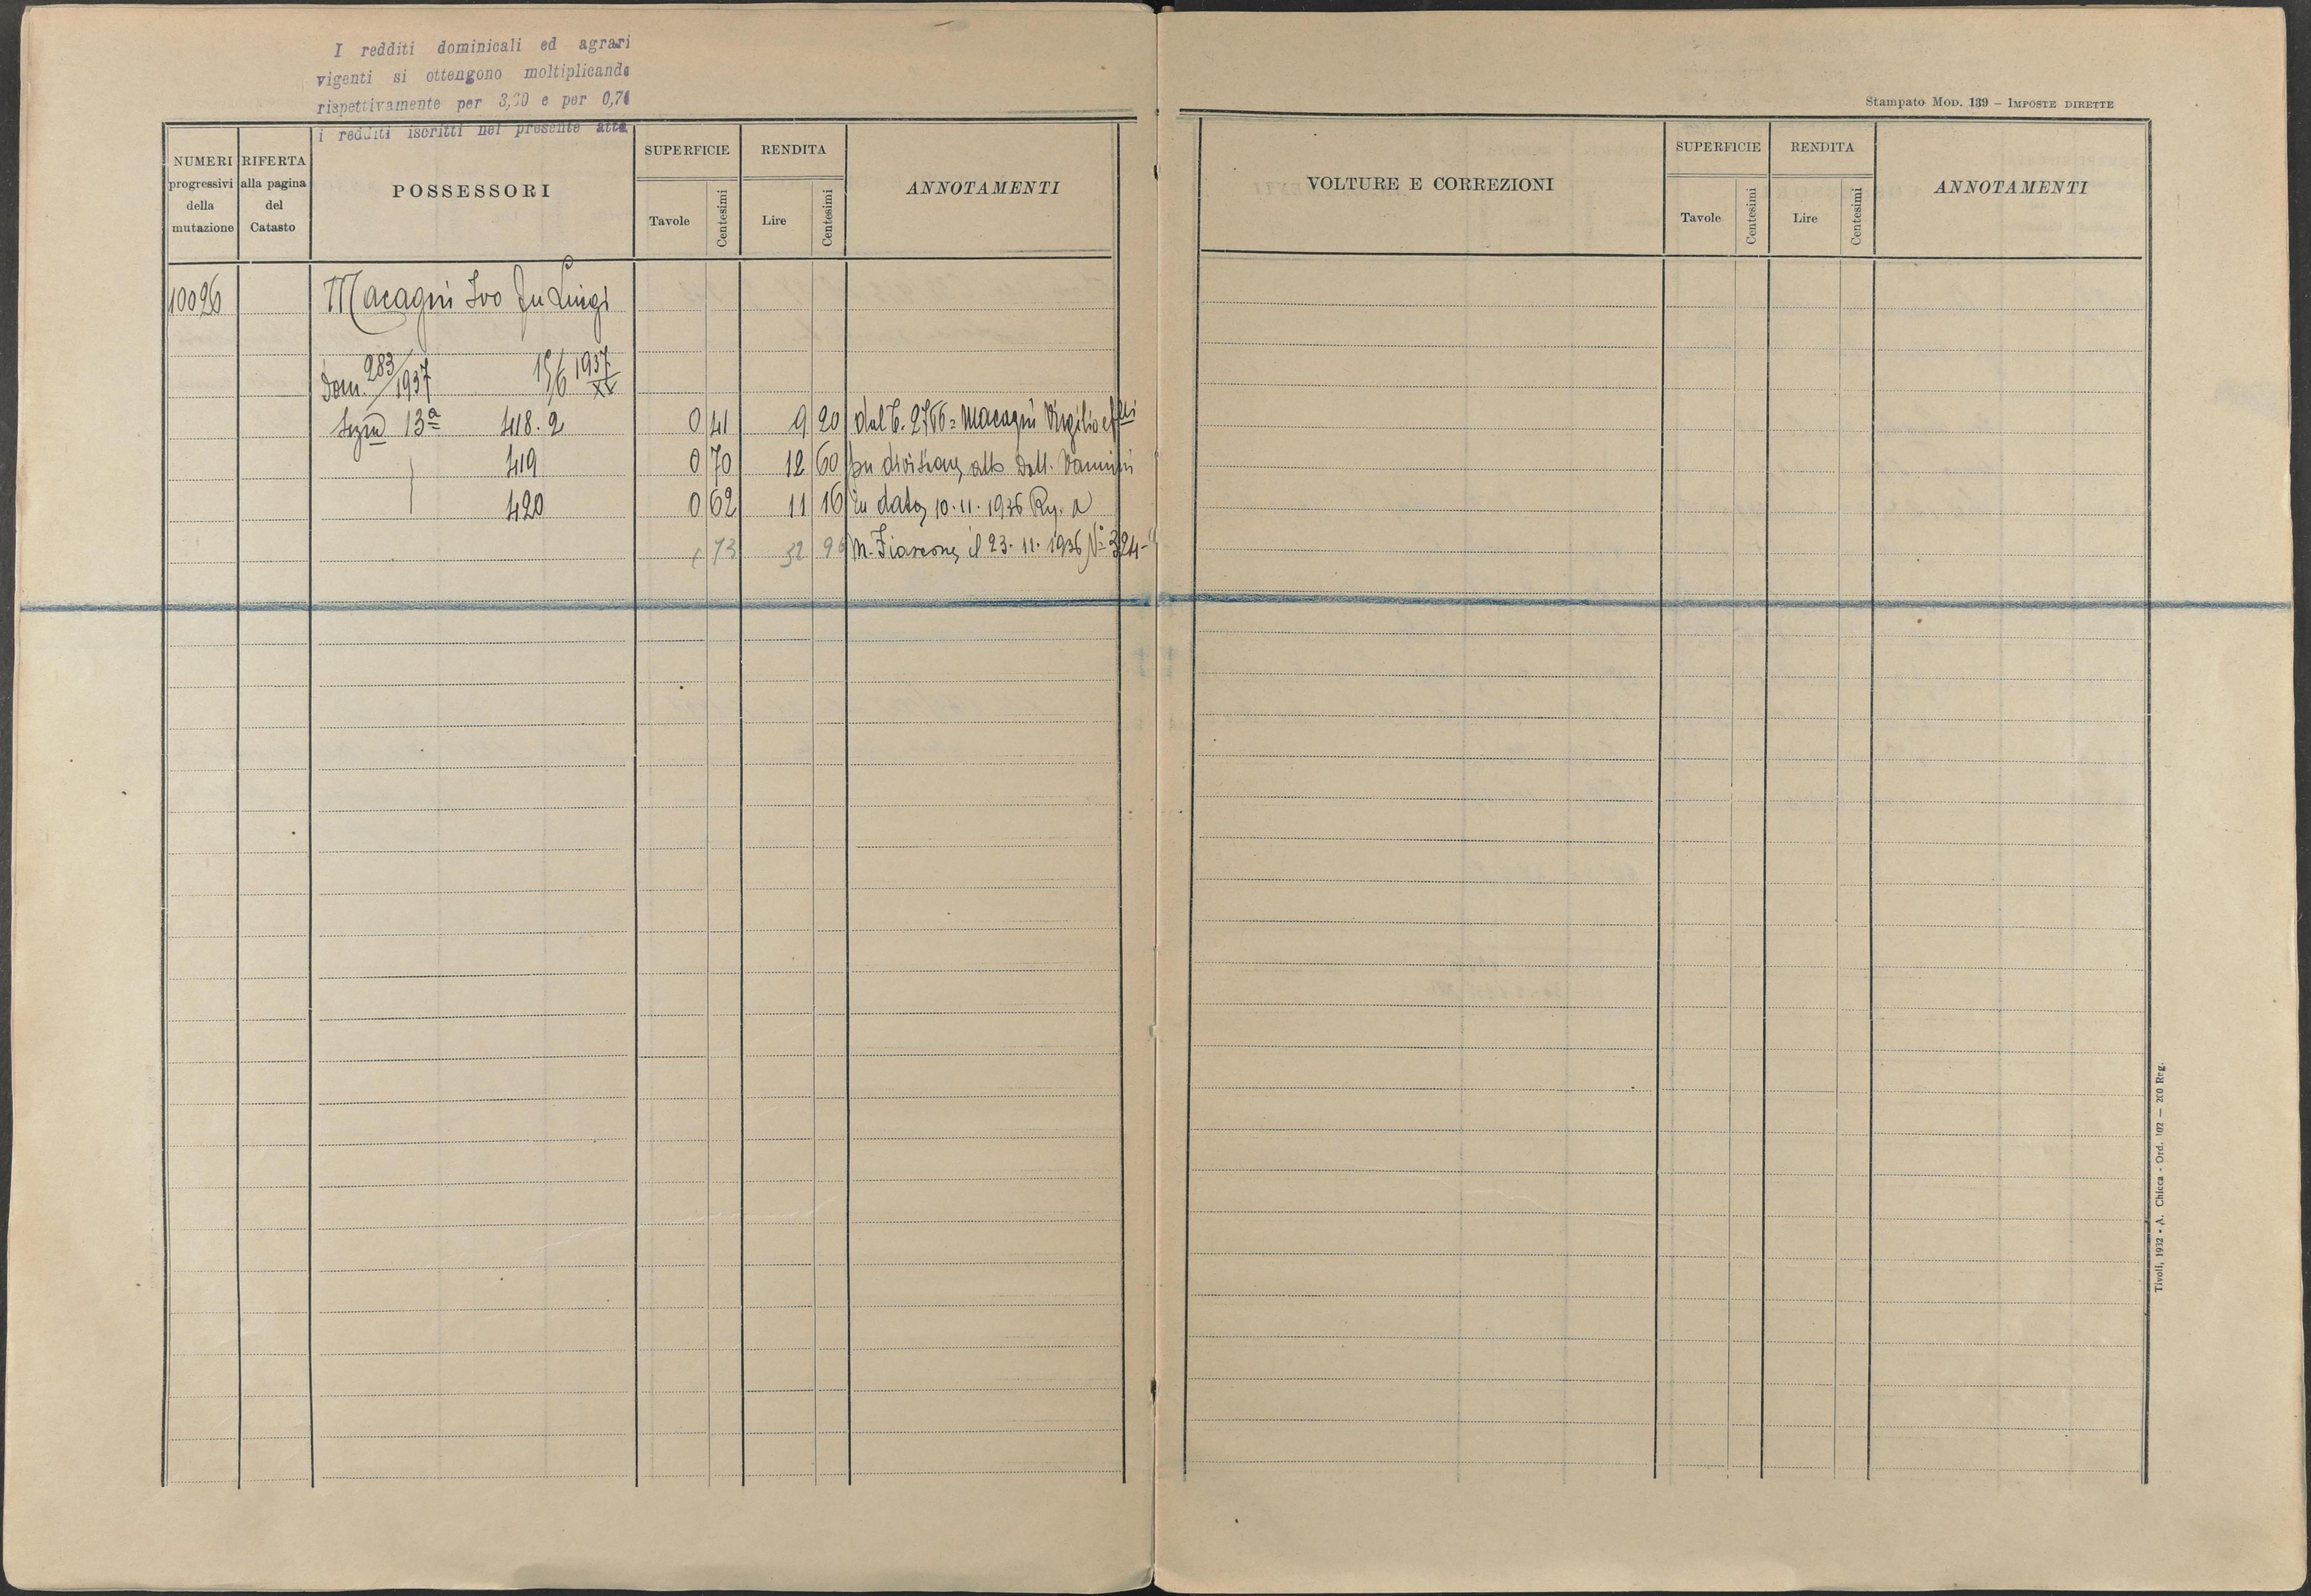 I redditi dominicali ed agrari
vigenti si ottengono moltiplicando
rispettivamente per 3,20 e per 0,76
i redditi iscritti nel presente atto
NUMERI
progressivi
della
mutazione
RIFERTA
alla pagina
del
Catasto
POSSESSORI
SUPERFICIE
Tavole
Centesimi
RENDITA
Lire
Centesimi
ANNOTAMENTI
10026 Macagni Ivo fu Luigi
Dom. 283/1937 15/6 1937 XV
13ª 418.2 0 41 9 20 dal C. 2766 = Macagni Virgilio
419 0 70 12 60 divisione atto Dott. Vannini
420 0 62 11 16 in data 10.11.1936 Rg. a
1 73 32 96 M. Fiascone il 23.11.1936 N° 324-
Stampato Mod. 139 – Imposte dirette
VOLTURE E CORREZIONI
SUPERFICIE
Tavole
Centesimi
RENDITA
Lire
Centesimi
ANNOTAMENTI
Tivoli, 1932 - A. Chicca - Ord. 102 — 200 Reg.